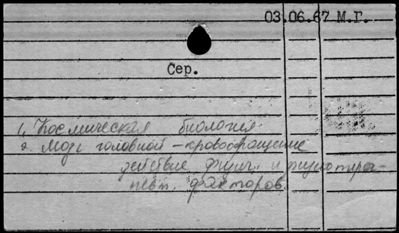 03.06.67 М.Г.
Сер.
1. Космическая биология.
2. Мозг головной – кровообращение
действие физич. и физиотера-
певт. факторов.